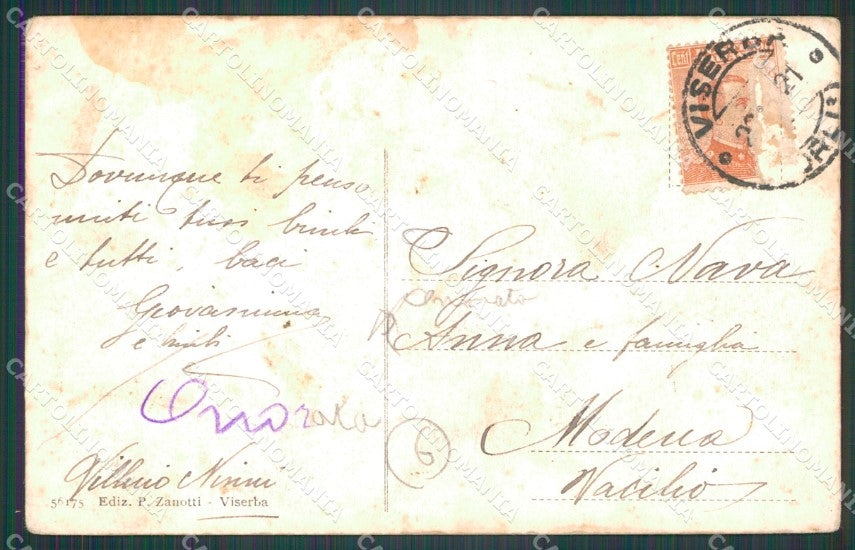 Dovunque ti penso
uniti tuoi bimbi
e tutti, baci
Giovannina
e bimbi
Onorata
Villino Ninni
56175 Ediz. P. Zanotti - Viserba
Cent
VISERBA
21
FORLI
Signora Nava
Onorata
Anna e famiglia
6
Modena
Vacilio
CARTOLINOMANIA